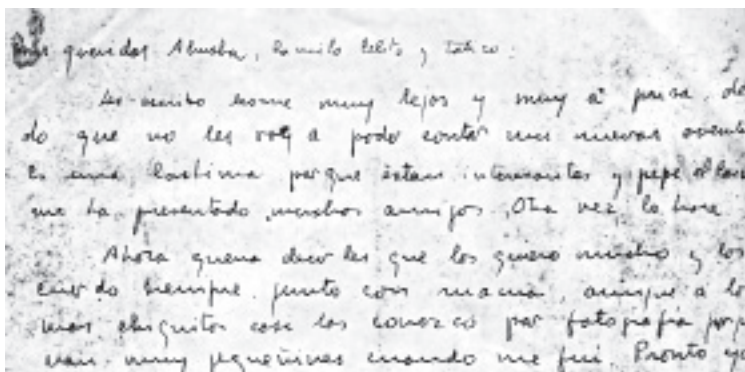 mis queridos Aliusha, Camilo Celita y Tatico:
Les escribo desde muy lejos y muy a prisa, de
do que no les voy a poder contar mis nuevas aventu
Es una lastima porque estan interesantes y pepe el Cai
me ha presentado muchos amigos. Otra vez lo hare
Ahora queria decirles que los quiero mucho y los
cuerdo siempre, junto con mama, aunque a lo
mas chiquitos casi los conozco por fotografia porq
eran muy pequeñines cuando me fui. Pronto yo